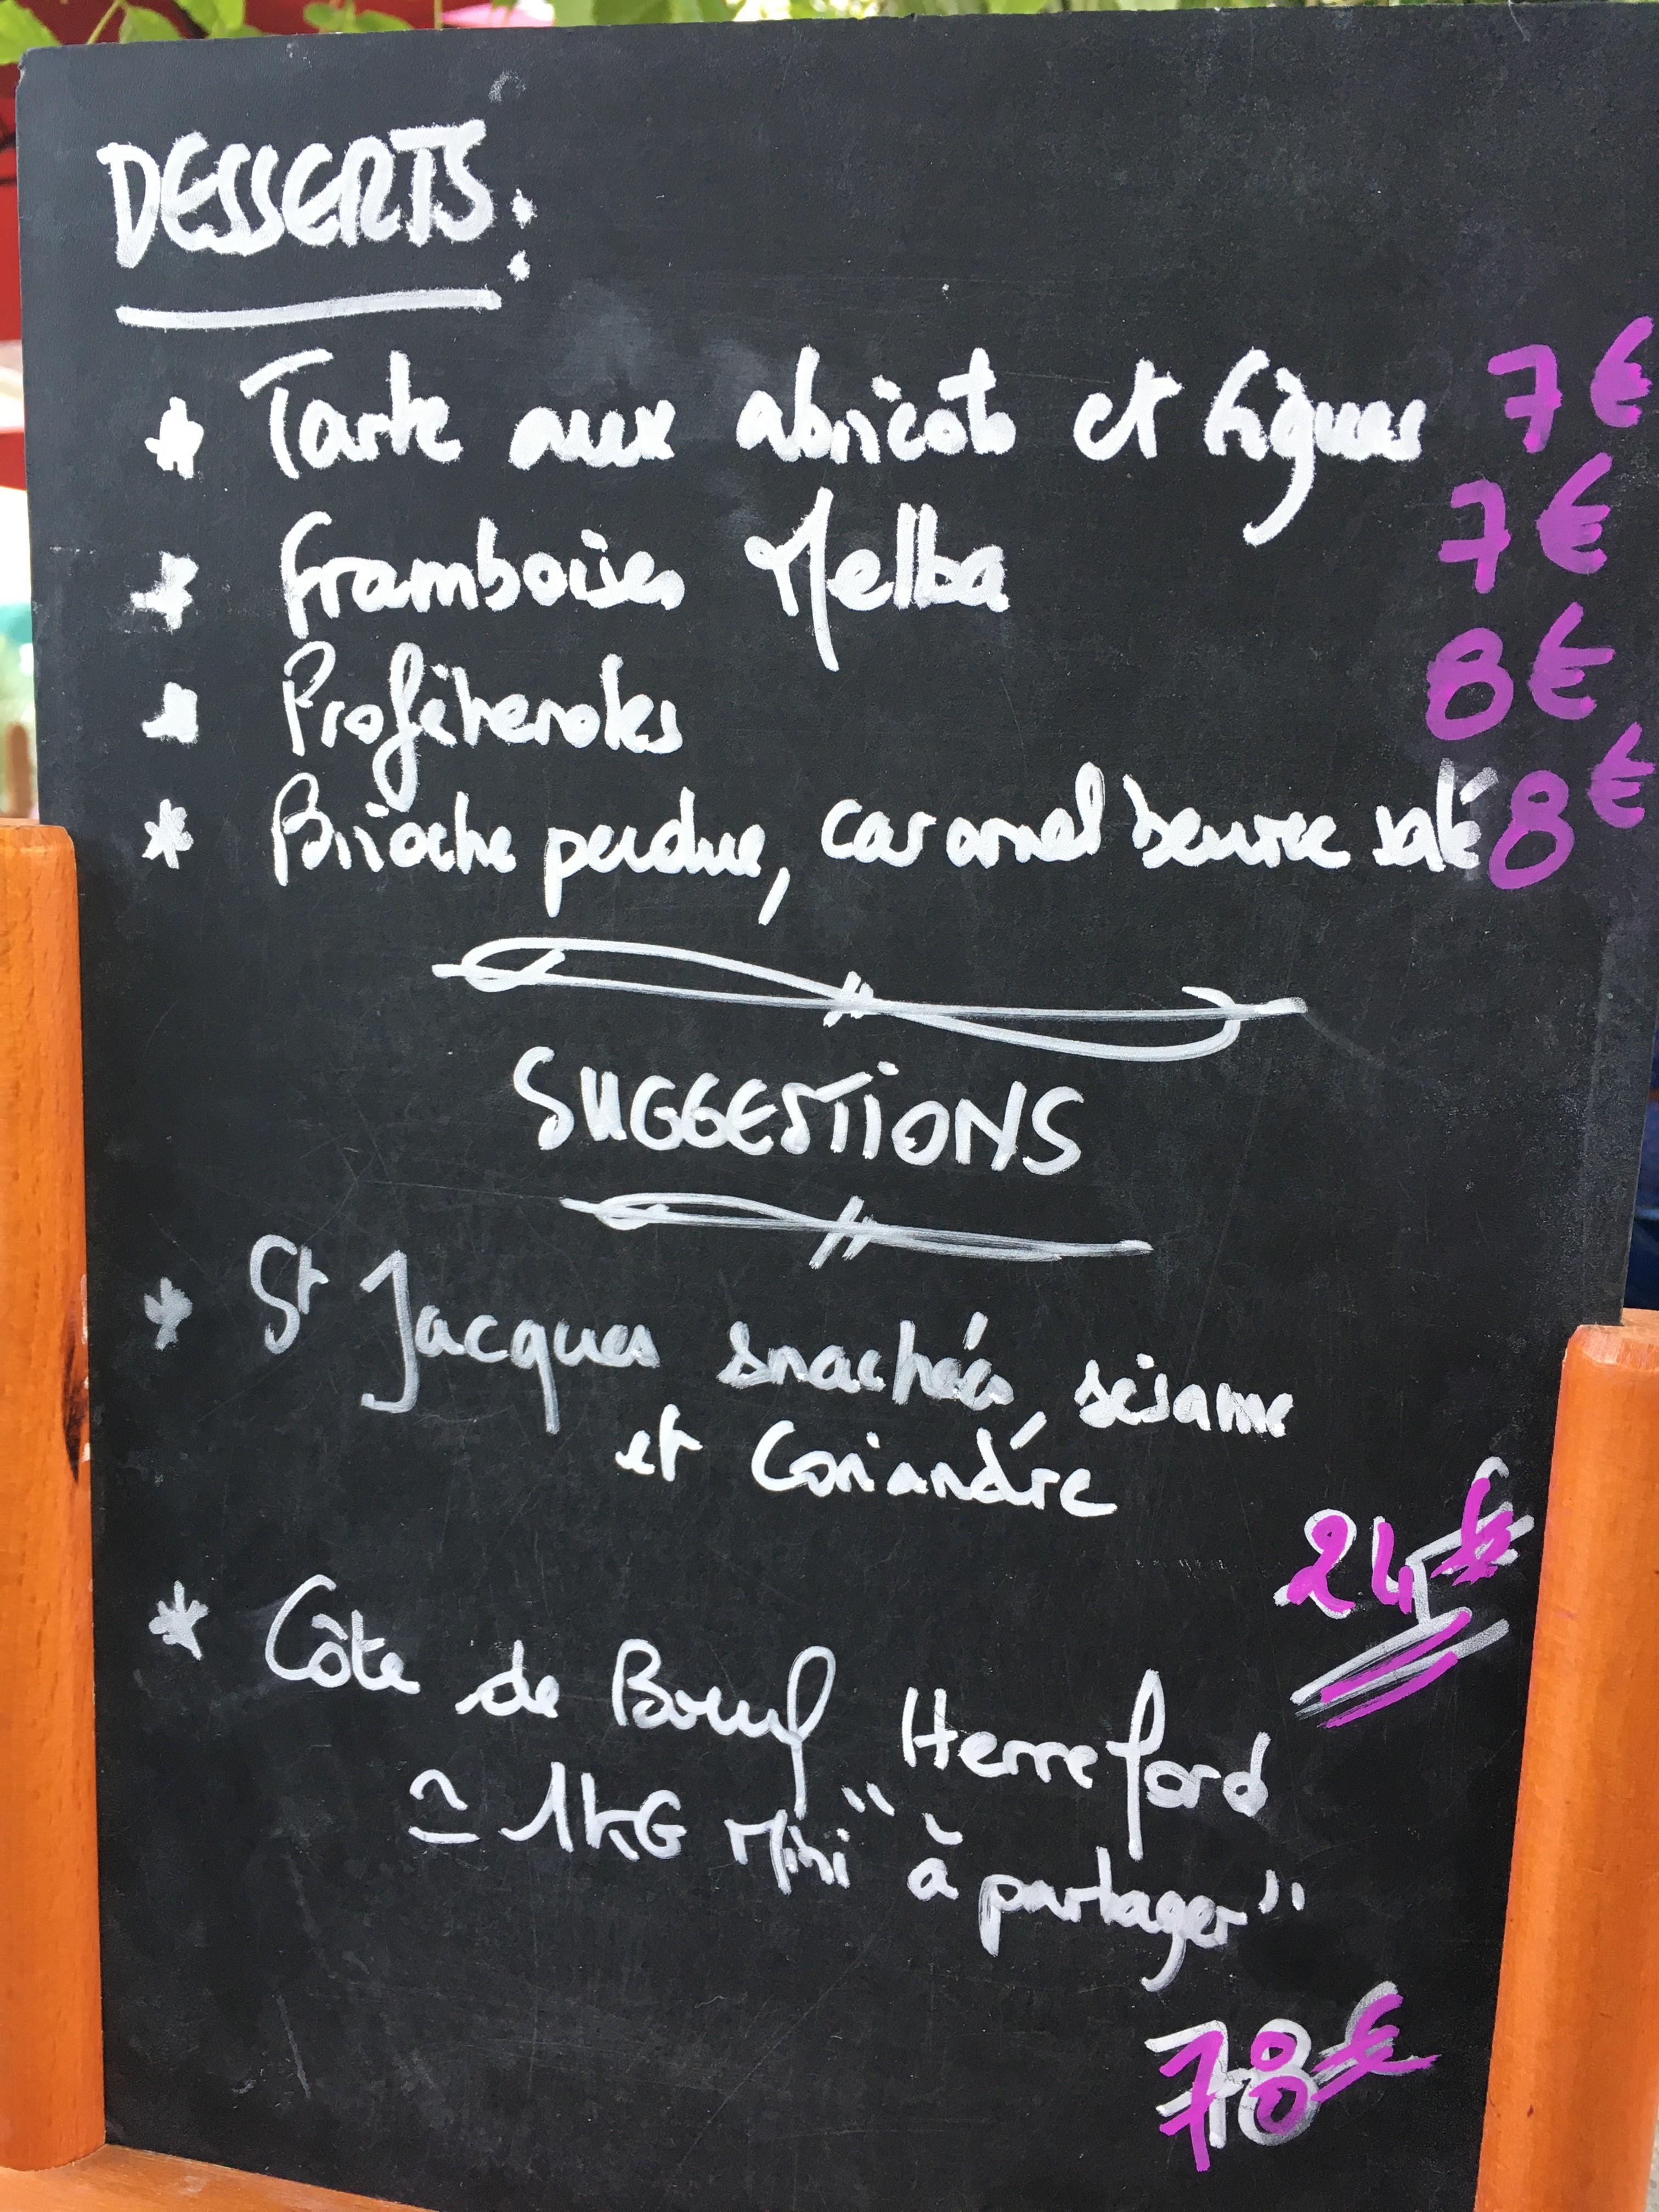 DESSERTS:
* Tarte aux abricots et figues 7€
* Framboises Melba 7€
* Profiteroles 8€
* Brioche perdue, caramel beurre salé 8€
SUGGESTIONS
* St Jacques snachées, sésame
et Coriandre
24€
* Côte de Boeuf Herreford
≃ 1KG Mini "à partager"
78€